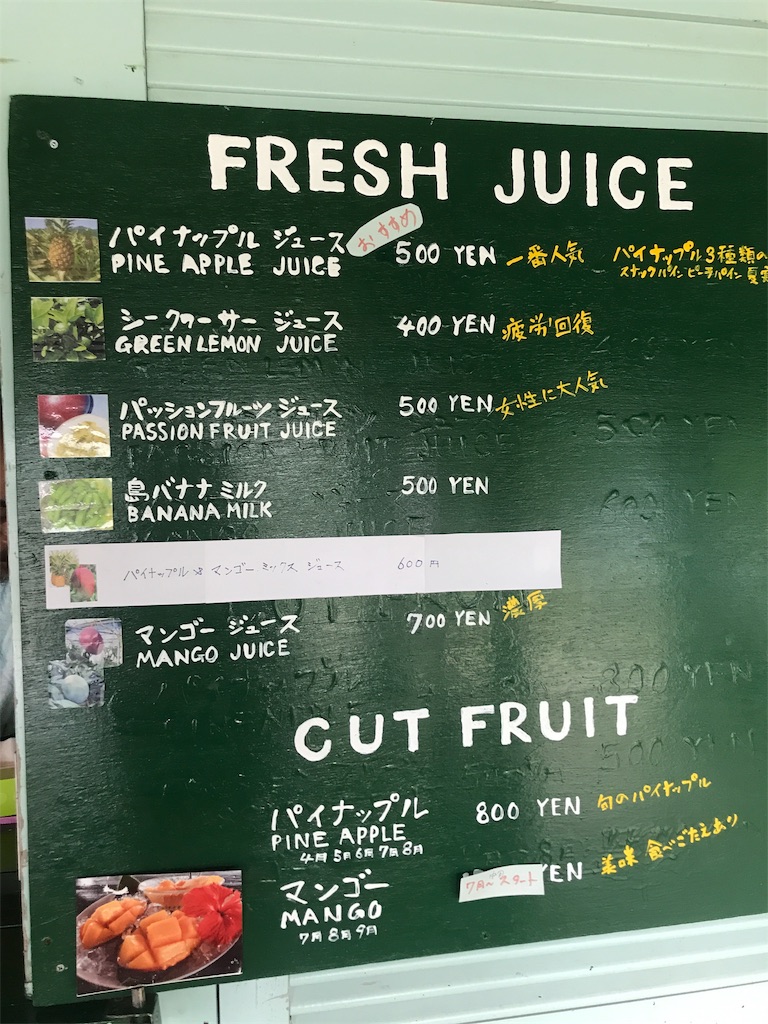 FRESH JUICE
パイナップル ジュース おすすめ
PINE APPLE JUICE 500 YEN 一番人気 パイナップル3種類の
スナックパイン ピーチパイン
シークヮーサー ジュース
GREEN LEMON JUICE 400 YEN 疲労回復
パッションフルーツ ジュース
PASSION FRUIT JUICE 500 YEN 女性に大人気
島バナナ ミルク
BANANA MILK 500 YEN
パイナップル & マンゴー ミックス ジュース 600円
マンゴー ジュース
MANGO JUICE 700 YEN 濃厚
CUT FRUIT
パイナップル
PINE APPLE 800 YEN 旬のパイナップル
4月 5月 6月 7月 8月
マンゴー
MANGO 7月〜スタート YEN 美味 食べごたえあり
7月 8月 9月